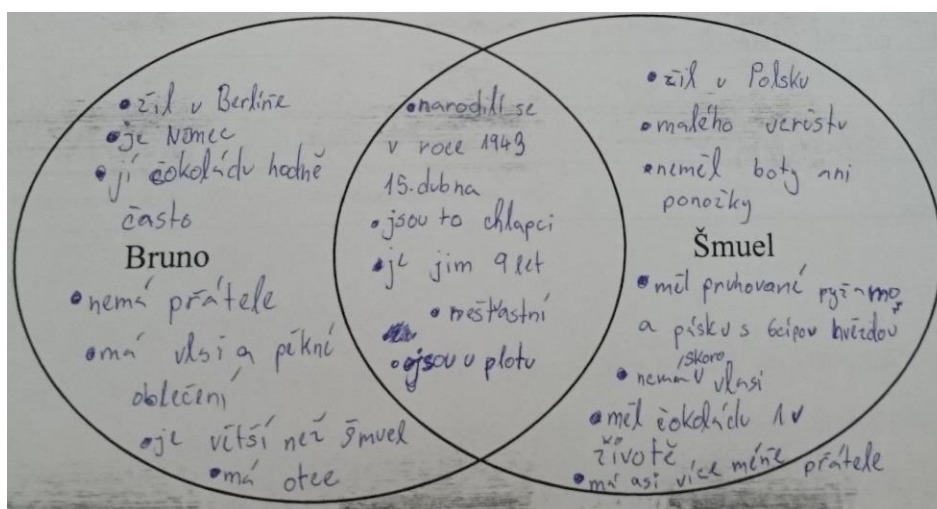 • žil v Berlíně
• je Němec
• jí čokoládu hodně
často
Bruno
• nemá přátele
• má vlasi a pěkné
oblečení
• je větší než Šmuel
• má otce
• narodili se
v roce 1943
15. dubna
• jsou to chlapci
• je jim 9 let
• nešťastní
• jsou u plotu
• žil v Polsku
• malého vzrůstu
• neměl boty ani
ponožky
Šmuel
• měl pruhované pyžamo
a pásku s 6cípou hvězdou
skoro
• nemá vlasi
• měl čokoládu 1 v
životě
• má asi více méně přátele